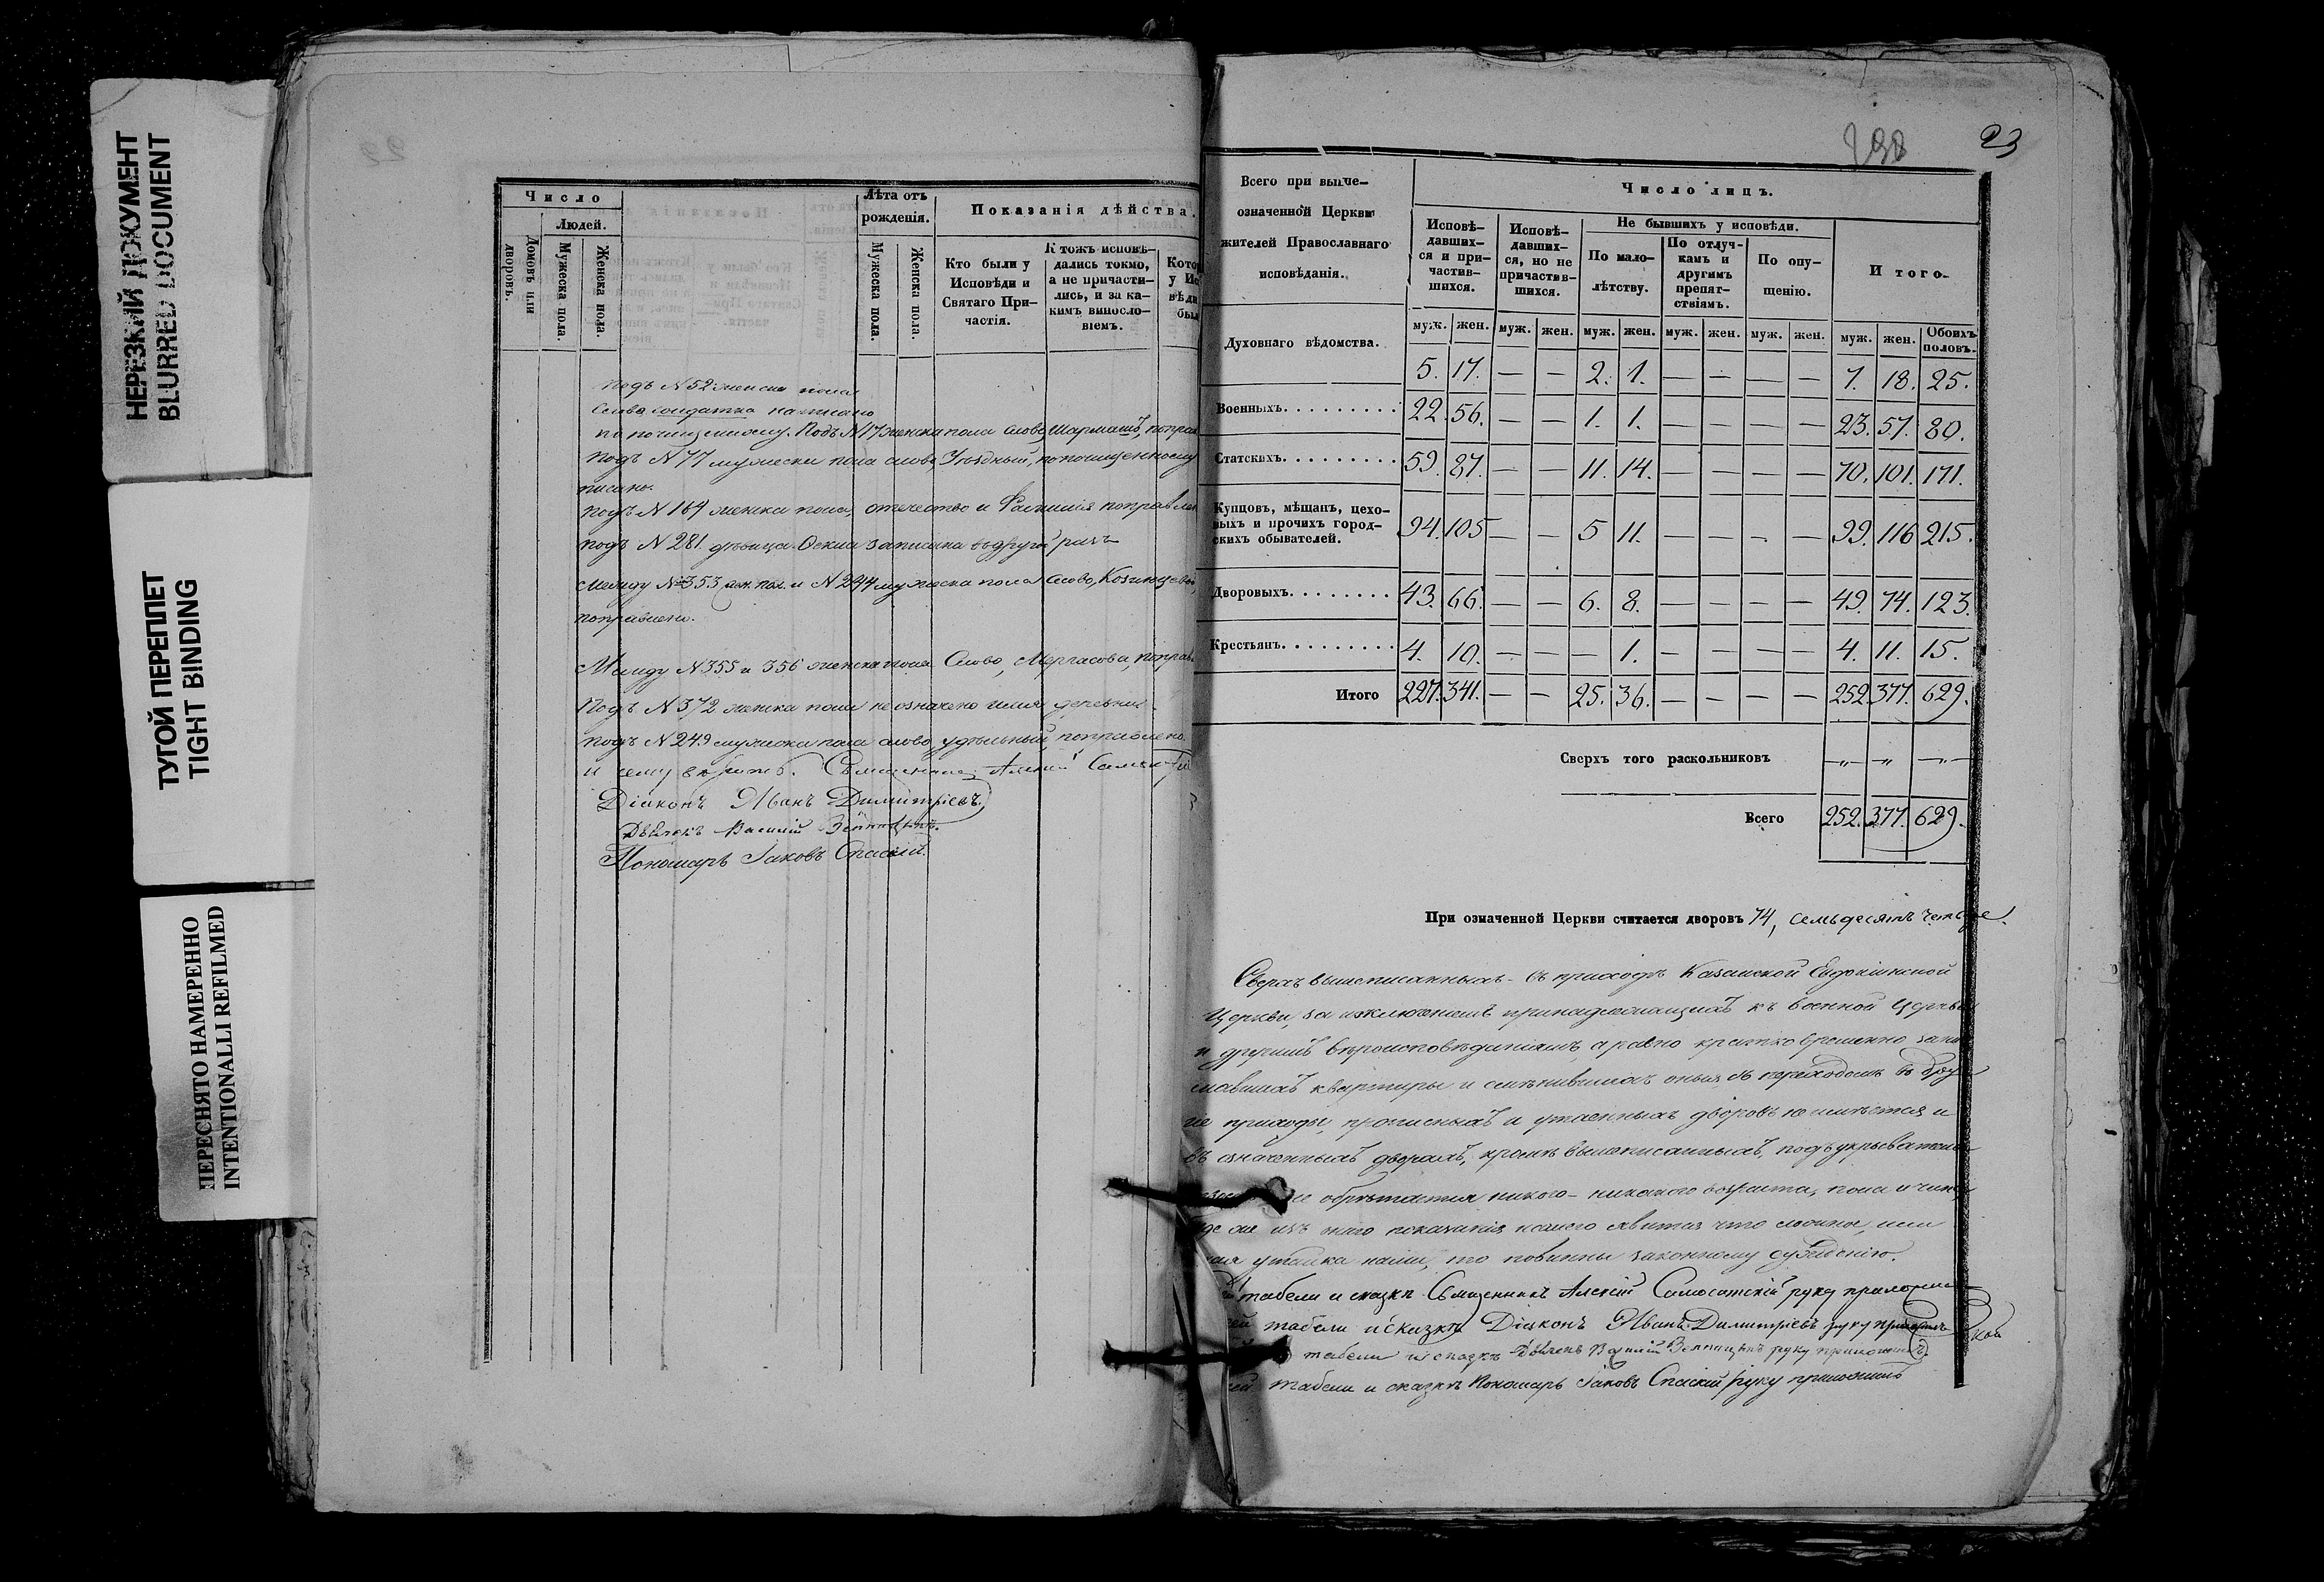 НЕРЕЗКИЙ ДОКУМЕНТ
BLURRED DOCUMENT
ТУГОЙ ПЕРЕПЛЕТ
TIGHT BINDING
ПЕРЕСНЯТО НАМЕРЕННО
INTENTIONALLI REFILMED
Число
Людей.
Домовъ или дворовъ.
Мужеска пола.
Женска пола.
Лѣта отъ рожденія.
Мужеска пола.
Женска пола.
Показанія дѣйства.
Кто были у Исповѣди и Святаго Причастія.
Ктожъ исповѣдались токмо, а не причастились, и за какимъ винословіемъ.
подъ N 52 женска пола
слово солдатка написано
по почищенному. Подъ N 17 женска пола слово, Шармашъ,
подъ N 77 мужеска пола слово, Уѣздный, по почищенному
писано.
подъ N 164 женска пола, отчество и Фамилия
подъ N 281. дѣвица записана въ другой разъ
Между N 353 жен. пол. и N 244 мужеска пола слово,
поправлено.
Между N 355 и 356 женска пола слово, Мергасова,
Подъ N 372 женска пола не означено имя деревни.
подъ N 249 мужеска пола слово, удѣльный, поправлено.
и сему вѣрить. Священникъ Алексій
Діаконъ Иванъ Димитріевъ.
Дьячекъ Василій
Пономарь Іаковъ Спасскій.
238
23
Всего при вышеозначенной Церкви жителей Православнаго исповѣданія.
Число лицъ.
Исповѣдавшихся и причастившихся.
Исповѣдавшихся, но не причастившихся.
Не бывшихъ у исповѣди.
По малолѣтству.
По отлучкамъ и другимъ препятствіямъ.
По опущенію.
Итого.
муж. жен. муж. жен. муж. жен. муж. жен. муж. жен. муж. жен. Обоихъ половъ.
Духовнаго вѣдомства. 5. 17. — — 2. 1. — — — — 7. 18. 25.
Военныхъ. 22. 56. — — 1. 1. — — — — 23. 57. 80.
Статскихъ. 59. 87. — — 11. 14. — — — — 70. 101. 171.
Купцовъ, мѣщанъ, цеховыхъ и прочихъ городскихъ обывателей. 94. 105 — — 5 11. — — — — 99. 116 215.
Дворовыхъ. 43. 66. — — 6. 8. — — — — 49. 74. 123.
Крестьянъ. 4. 10. — — — 1. — — — — 4. 11. 15.
Итого 227. 341. — — 25. 36. — — — — 252. 377. 629.
Сверхъ того раскольниковъ —„— „ —„—
Всего 252. 377. 629.
При означенной Церкви считается дворовъ 74, семьдесятъ четыре.
Сверхъ вышеписанныхъ въ приходѣ Казанской Евдокіинской
Церкви, за изключеніемъ принадлежащихъ къ военной Церкви
и другимъ вѣроисповѣданіямъ, а равно кратковременно зани
мавшихъ квартиры и смѣнившихъ оныя съ переходомъ въ дру
гіе приходы, прописныхъ и утаенныхъ дворовъ не имѣется и
въ означенныхъ дворахъ, кромѣ вышеписанныхъ, подъ
обрѣтается никого никакого возраста, пола и чина,
изъ онаго показанія нашего явится что ложное, или
утайка наша, то повинны законному сужденію.
табели и сказкѣ Священникъ Алексій Самосатскій руку приложилъ
табели и сказкѣ Діаконъ Иванъ Димитріевъ руку приложилъ
табели и сказкѣ Дьячекъ Василій руку приложилъ.
табели и сказкѣ Пономарь Іаковъ Спасскій руку приложилъ